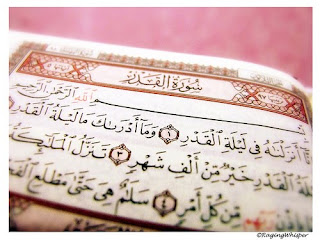 سُورَةُ القَدْرِ
اللَّهِ الرَّحْمَٰنِ الرَّحِيمِ
أَنزَلْنَٰهُ فِي لَيْلَةِ الْقَدْرِ ١ وَمَا أَدْرَىٰكَ مَا لَيْلَةُ الْقَدْرِ
الْقَدْرِ خَيْرٌ مِّنْ أَلْفِ شَهْرٍ ٣ تَنَزَّلُ الْمَلَٰٓئِكَ
مِّن كُلِّ أَمْرٍ ٤ سَلَٰمٌ هِيَ حَتَّىٰ مَطْلَعِ الْفَ
©RagingWhisper